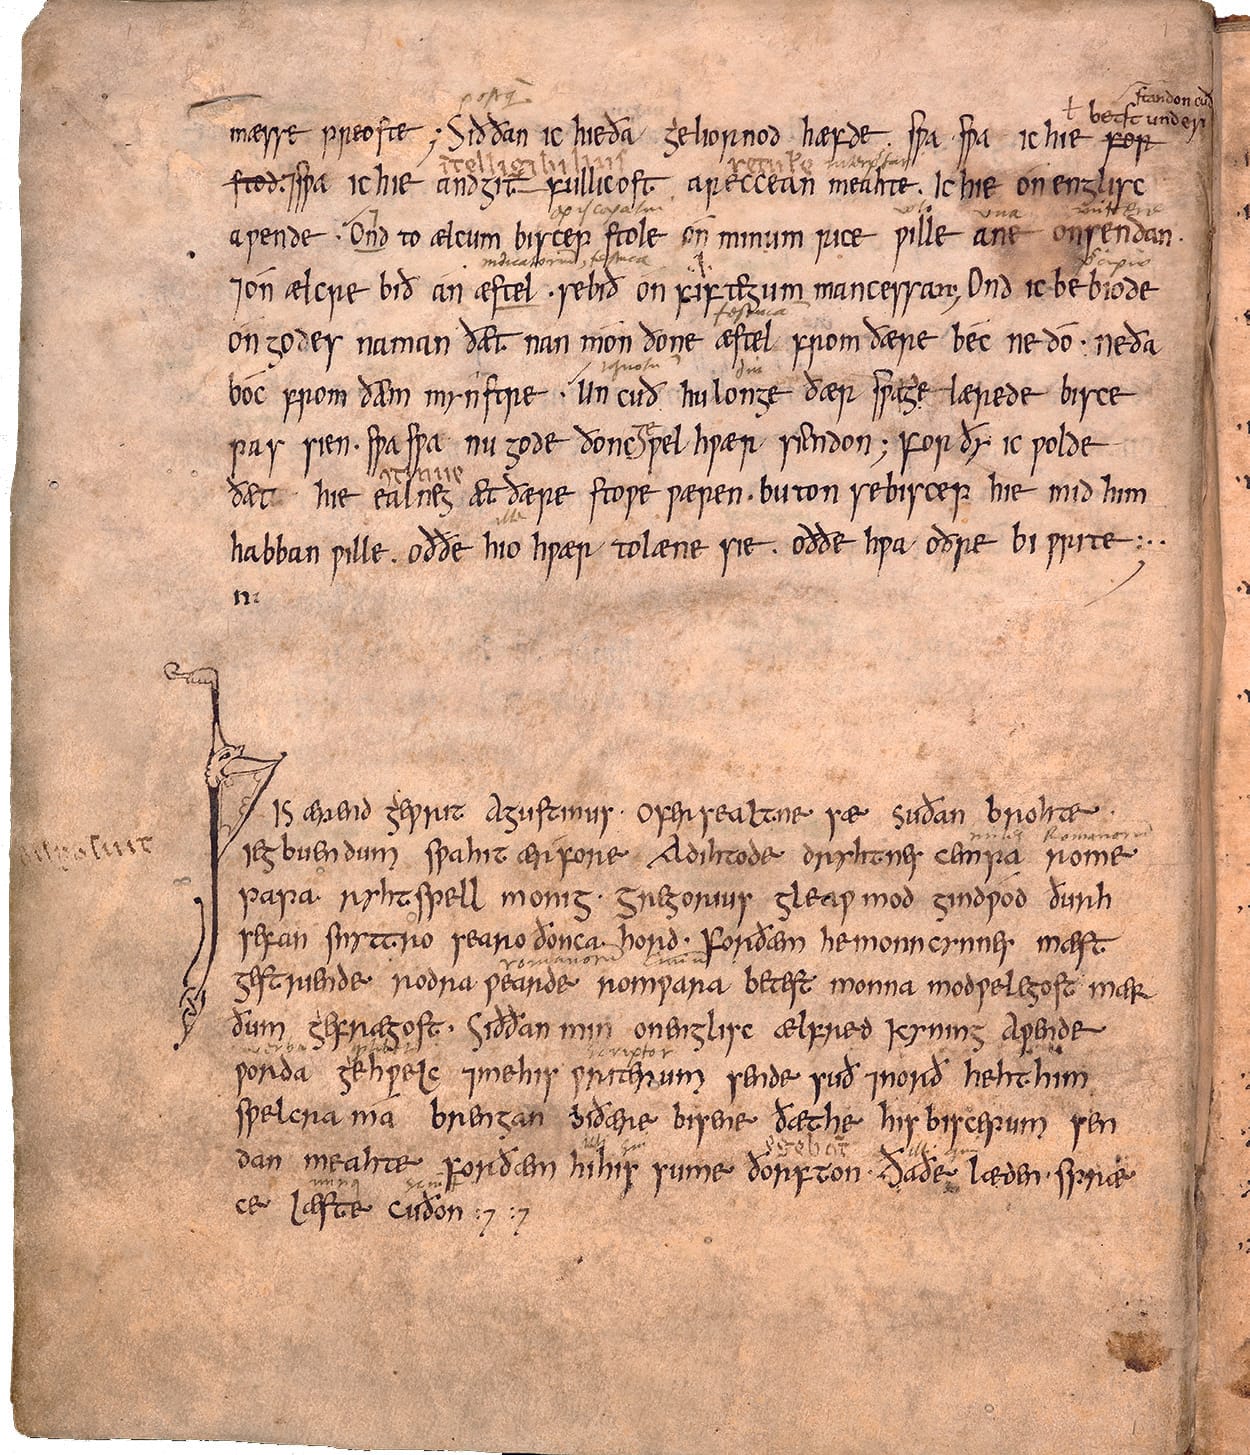 postq̄
standon cuð
betst under
mæsse preoste ; Siððan ic hie ða geliornod hæfde . sƿa sƿa ic hie for
intelligibilius
stod . ⁊ sƿa ic hie andgitfullicost areccean meahte . Ic hie on englisc
episcopalem uolo una mittere
aƿende . Ond to ælcum biscep stole on minum rice ƿille ane onsendan .
indicatorium, festuca
⁊ on ælcre bið an æstel . se bið on fiftegum mancessan ; Ond ic bebiode
festuca
on godes naman ðæt nan mon ðone æstel from ðære bec ne do . ne ða
diu
boc from ðæm mynstre . Uncuð hu longe ðær sƿæ ge lærede bisce
pas sien . sƿa sƿa nu gode ðonc geƿel hƿær siendon ; For ðy ic ƿolde
ðæt hie ealneg æt ðære stoƿe ƿæren . buton se biscep hie mid him
ille
habban ƿille . oððe hio hƿær to læne sie . oððe hƿa oðre bi ƿrite :..
n:
Þis ærend geƿrit Agustinus . ofer sealtne sæ suðan brohte .
miles Romanorum
iegbuendum sƿa hit ær fore Adihtode dryhtnes cempa rome
papa . ryht spell monig . Gregorius gleaƿ mod gindƿod ðurh
sefan snyttro searo ðonca hord . Forðæm he monncynnes mæst
romanorum
gestriende rodra ƿearde romƿara betest monna modƿelegost mær
ðum gefrægost . Siððan min on englisc ælfred kyning Aƿende
verba scriptor
ƿorda gehƿelc ⁊ me his ƿriterum sende suð ⁊ norð heht him
sƿelcra ma brengan bi ðære bisene ðæt he his biscepum sen
egebat
dan meahte forðæm hi his sume ðorfton . Ða ðe læden spræ
ce læste cuðon :⁊ :⁊